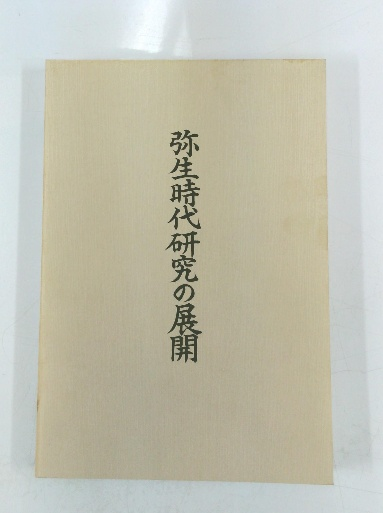 弥生時代研究の展開